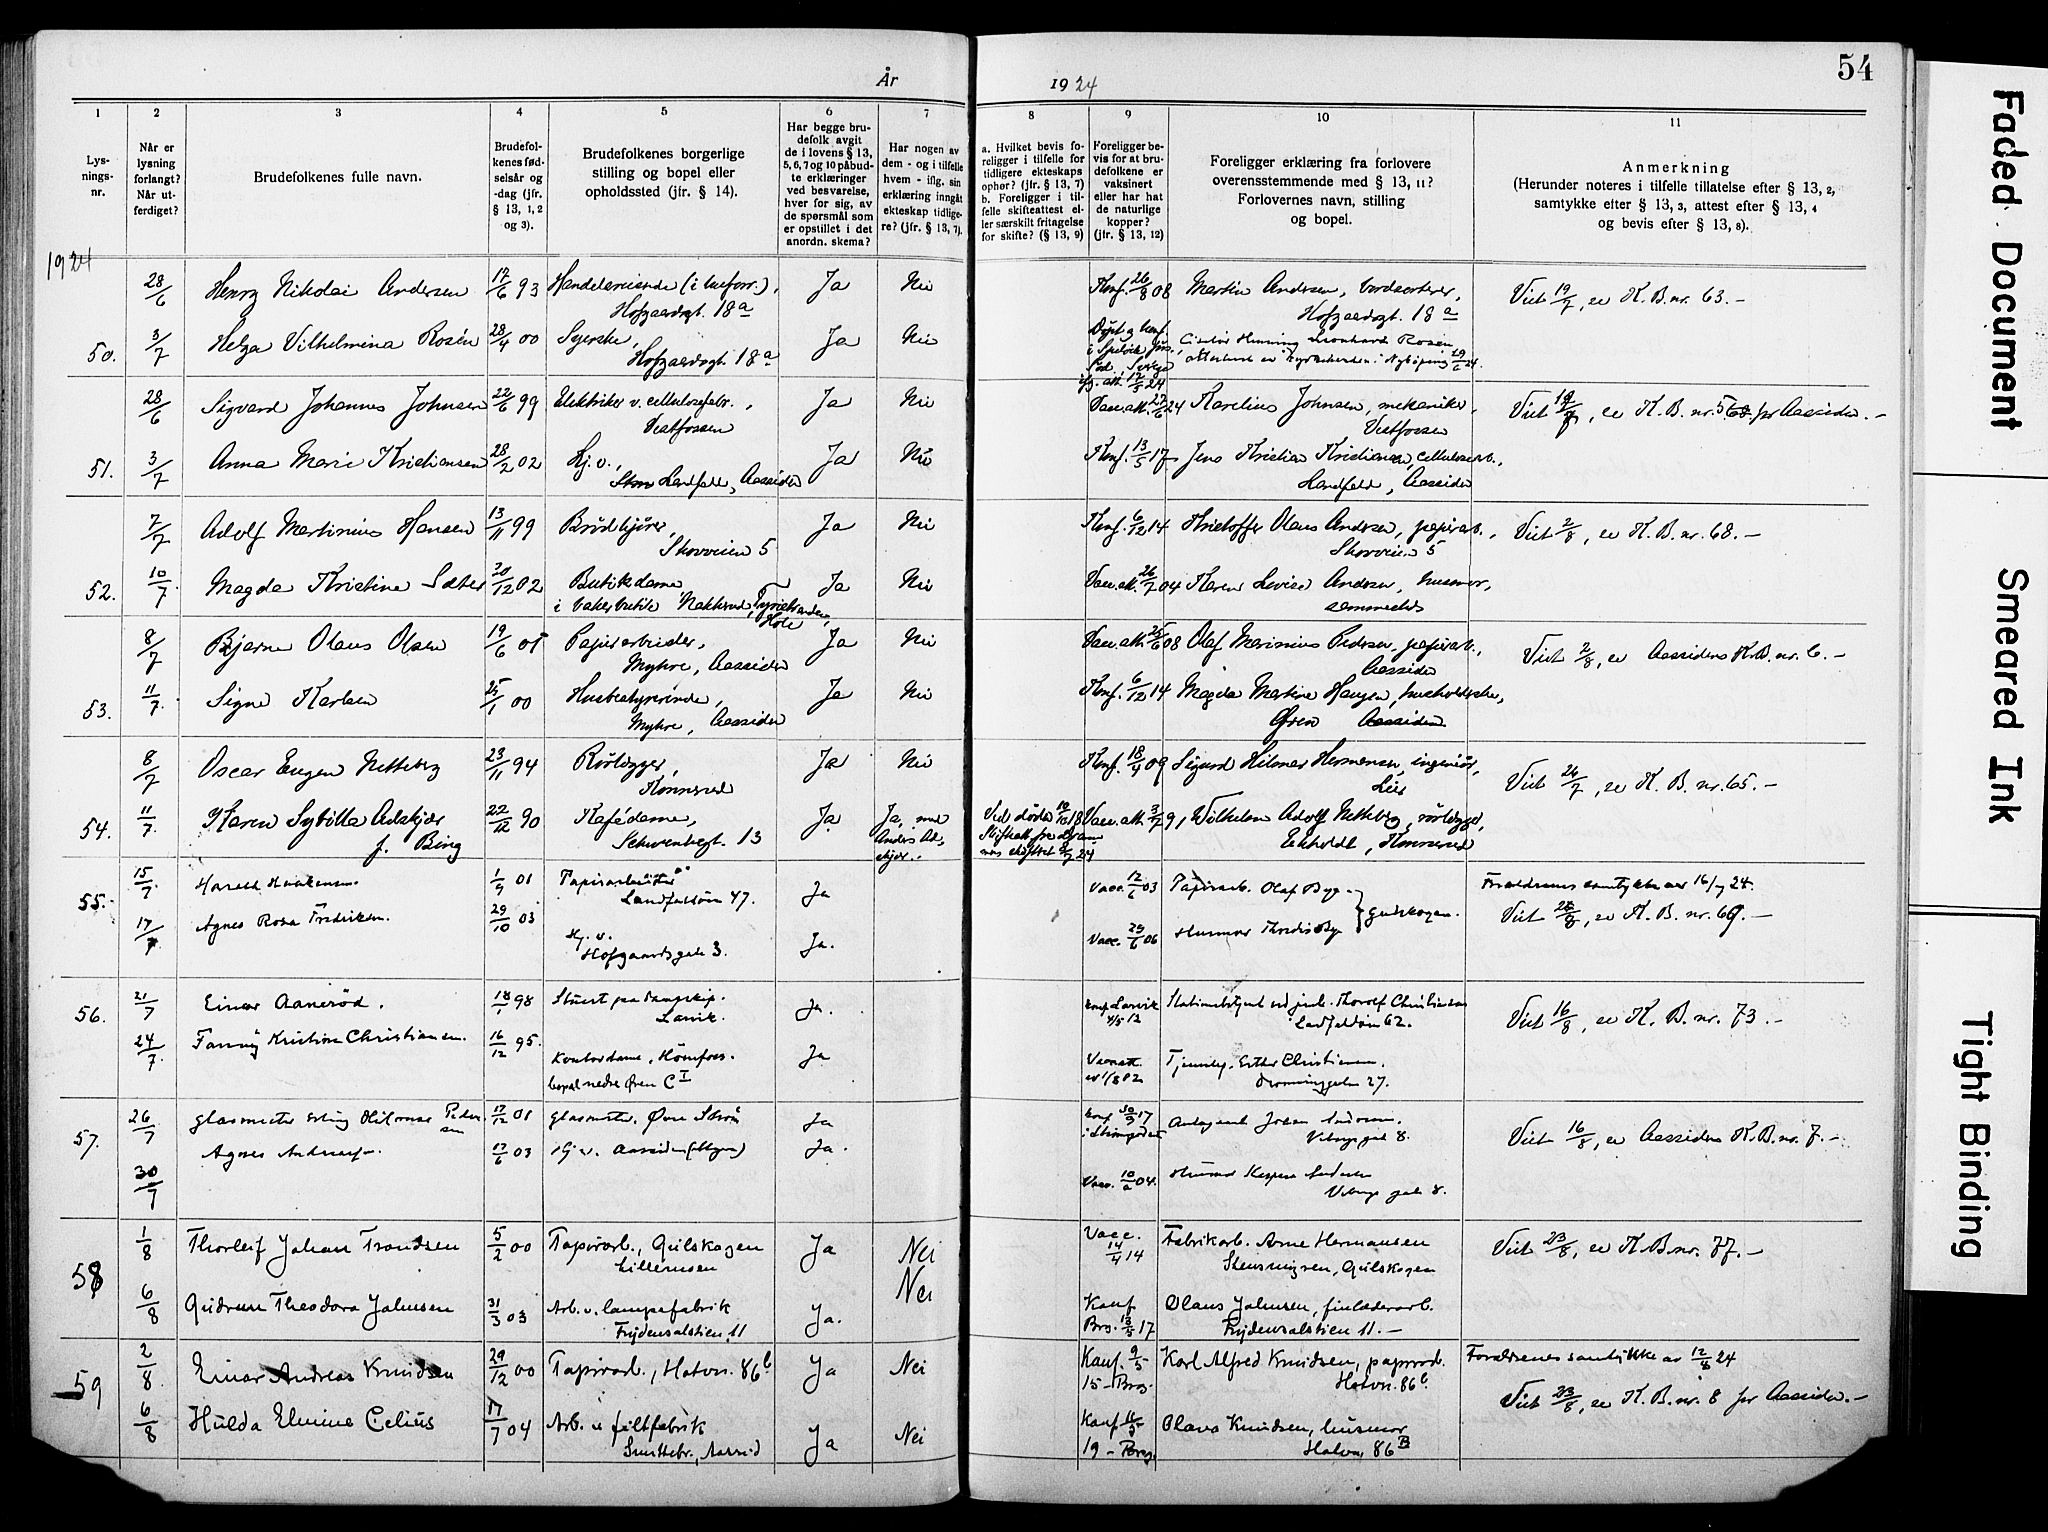 54
År 1924
1
2
3
4
5
6
7
8
9
10
11
Lys-
nings-
nr.
Når er
lysning
forlangt?
Når ut-
ferdiget?
Brudefolkenes fulle navn.
Brudefol-
kenes fød-
selsår og
-dag (jfr.
§ 13, 1, 2
og 3).
Brudefolkenes borgerlige
stilling og bopel eller
opholdssted (jfr. § 14).
Har begge bru-
defolk avgit
de i lovens § 13,
5, 6, 7 og 10 påbud-
te erklæringer
ved besvarelse,
hver for sig, av
de spørsmål som
er opstillet i det
anordn. skema?
Har nogen av
dem - og i tilfelle
hvem - iflg. sin
erklæring inngåt
ekteskap tidlige-
re? (jfr. § 13, 7).
a. Hvilket bevis fo-
religger i tilfelle for
tidligere ekteskaps
ophør? (jfr. § 13, 7)
b. Foreligger i til-
felle skifteattest el-
ler særskilt fritagelse
for skifte? (§ 13, 9)
Foreligger be-
vis for at bru-
defolkene er
vaksinert
eller har hat
de naturlige
kopper?
(jfr. § 13, 12)
Foreligger erklæring fra forlovere
overensstemmende med § 13, 11?
Forlovernes navn, stilling
og bopel.
Anmerkning
(Herunder noteres i tilfelle tillatelse efter § 13, 2,
samtykke efter § 13, 3, attest efter § 13, 4
og bevis efter § 13, 8).
1924
28/6 Henry Nikolai Andersen 17/6 93 Handelsreisende Ja Nei Konf. 26/8 08 Martin Andersen, bordsorterer, Vict 19/7, se K. B. nr. 63. -
Hofgaardsgt. 18a Hofgaardsgt. 18a
50. 3/7 Helga Vilhelmina Rosén 28/4 00 Syerske, Ja Nei Døpt og konf. Henning Leonhard Rosen
Hofgaardsgt. 18a
28/6 Sigvard Johannes Johnsen 22/6 99 Elektriker v. cellulosefabr., Ja Nei Vacc.att. 27/6 24 Karelius Johnsen, mekaniker, Vict 19/7, se K. B. nr. 5 for Aassiden. -
Vestfossen Vestfossen
51. 3/7 Anna Marie Kristiansen 28/2 02 Hj. v., Ja Nei Konf. 13/5 17 Jens Kristian Kristiansen, cellulosearb.,
Landfald, Aassiden Landfald, Aassiden
7/7 Adolf Martinius Hansen 13/11 99 Brødkjører, Ja Nei Konf. 6/12 14 Kristoffer Olaus Andersen, papirarb., Vict 2/8, se K. B. nr. 68. -
Skovveien 5 Skovveien 5
52. 10/7 Magda Kristine Sæter 20/12 02 Butikdame Ja Nei Vacc.att. 26/7 04 Karen Lovise Andersen, husmor,
i bakerbutik Nakkerud, Tyristranden, Hole sammesteds
8/7 Bjarne Olaus Olsen 19/6 01 Papirarbeider, Ja Nei Vacc.att. 25/6 08 Olaf Marinius Pedersen, papirarb., Vict 2/8, se Aassidens K. B. nr. 6. -
Myhre, Aassiden Aassiden
53. 11/7 Signe Karlsen 25/1 00 Husbestyrerinde, Ja Nei Konf. 6/12 14 Magda Martine Haugen, husholderske,
Myhre, Aassiden Øren Aassiden
8/7 Oscar Eugen Netteberg 23/11 94 Rørlægger, Ja Nei Konf. 18/4 09 Sigurd Hilmar Hermansen, ingeniør, Vict 26/7, se K. B. nr. 65. -
Konnerud Lier
54. 11/7 Karen Sybilla Adskjær 22/12 90 Kafédame, Ja Ja, med Ved døden Vacc.att. 3/7 91 Wilhelm Adolf Netteberg, rørlægger,
f. Bing Schwenckegt. 13 Anders Ad- Skifteatt. fra Dram- Ekholdt, Konnerud
skjær. mens skifteret 8/7 24
55. 15/7 Harald Haakensen. 1/9 01 Papirarbeider Ja Vacc. 12/6 03 Papirarb. Olaf Bye Forældrenes samtykke av 16/7 24.
Landfaldøen 47. Gulskogen. Vict 28/8, se K. B. nr. 69. -
17/7 Agnes Rosa Fredriksen. 29/10 03 Hj. v. Ja. Vacc. 23/6 06 Husmor Thordis Bye
Hofgaardsgate 3.
56. 21/7 Einar Aanerød. 18/1 98 Stuert paa Tankskip. Ja. konf Larvik Stationsbetjent ved jernb. Thorolf Christiansen Vict 16/8, se K. B. nr. 73. -
Larvik. 4/5 13 Landfaldøn 62.
24/7 Fanny Kristine Christiansen. 16/12 95. Kontordame, Hønefoss. Ja Vaccatt. Esther Christiansen.
bopel nedre Øren C I Dronninggaten 27.
57. 26/7 Glasmester Erling Hilmar Peder- 17/12 01 Glasmester. Øvre Strøm Ja konf 30/9 17 Johan Andersen. Vict 16/8, se Aassidens K. B. nr. 7. -
sen i Strømsgodset Vibergs gade 8.
30/7 Agnes Andersen. 17/6 03 Hj. v. Aassiden Ja. Vacc. 10/2 04. Husmor Andersen
Vibergs gade 8.
58 1/8 Thorleif Johan Trondsen 5/2 00 Papirarb., Gulskogen Ja Nei Vacc. 14/4 14 Fabrikarb. Arne Hermansen Vict 23/8, se K. B. nr. 77. -
Lillemoen Gulskogen
6/8 Gudrun Theodora Johnsen 31/3 03 Arb. v. lampefabrik Ja. Nei Konf Olaus Johnsen,
Frydensalstien 11 Brg. 13/5 17 Frydensalstien 11. -
59 2/8 Einar Andreas Knudsen 29/12 00 Papirarb., Hotvn. 86b Ja Nei Konf. 9/5 Karl Alfred Knudsen, papirarb. Forældrenes samtykke av 12/8 24
15 - Brg. Hotvn. 86b. Vict 23/8, se K. B. nr. 8 for Aassiden. -
6/8 Hulda Elmine Celius 17/7 04 Arb. v filtfabrik Ja Nei Konf 11/5 Olava Knudsen, husmor
19 - Brg. Hotvn, 86B
Faded Document
Smeared Ink
Tight Binding